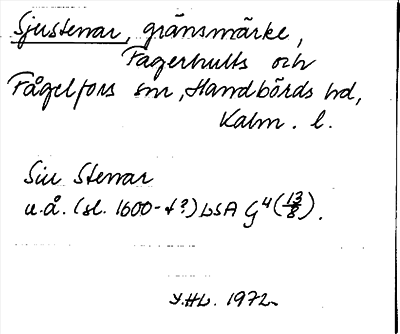 Sjustenar, gränsmärke,
Fagerhults och
Fågelfors sn, Handbörds hd,
Kalm. l.
Siu Stenar
u.å. (sl. 1600-t?) LSA G4 (13/8).
Y.Hb. 1972